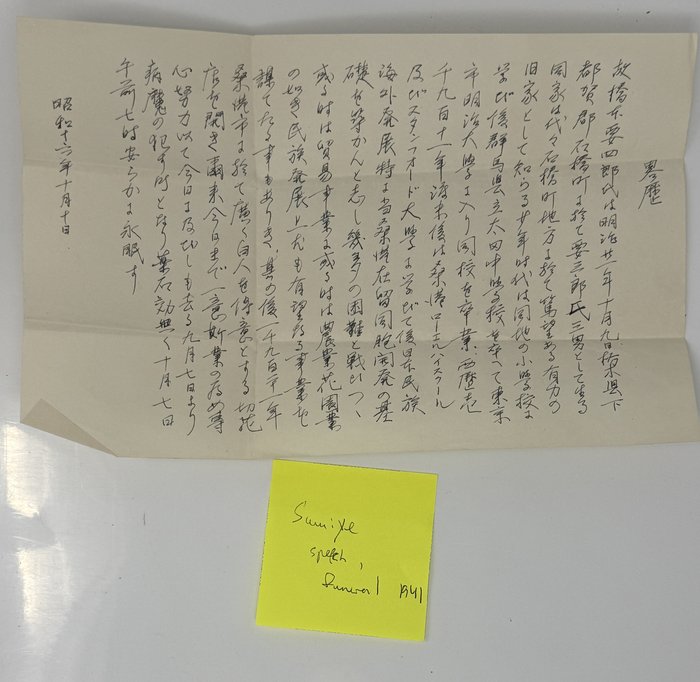 畧歴
故橋本要四郎氏は明治廿一年十月九日栃木県下
都賀郡石橋町に於て要三郎氏三男として生る
同家は代々石橋町地方に於て篤望ある有力の
旧家として知らる 少年時代は同地の小学校に
学び後群馬県立太田中学校を卒へて東京
市明治大学に入り同校を卒業、西歴壱
千九百十一年渡米後は桑港ローエルハイスクール
及びスタンフオード大学に学びて後日本民族
海外発展特に当桑港在留同胞開発の基
礎を築かんと志し幾多の困難と戦ひつゝ
或る時は貿易事業に或る時は農業花園業
の如き民族発展上尤も有望なる事業を
課てたる事もありき、其の後一千九百二十一年
桑港市に於て廣く白人を得意とする切花
店を開き爾来今日まで一意斯業の為め専
心努力以て今日に及びしも去る九月七日より
病魔の犯す所となり薬石効無く十月七日
午前七時安らかに永眠す
昭和十六年十月十日
Sumiye
speech,
funeral 1941